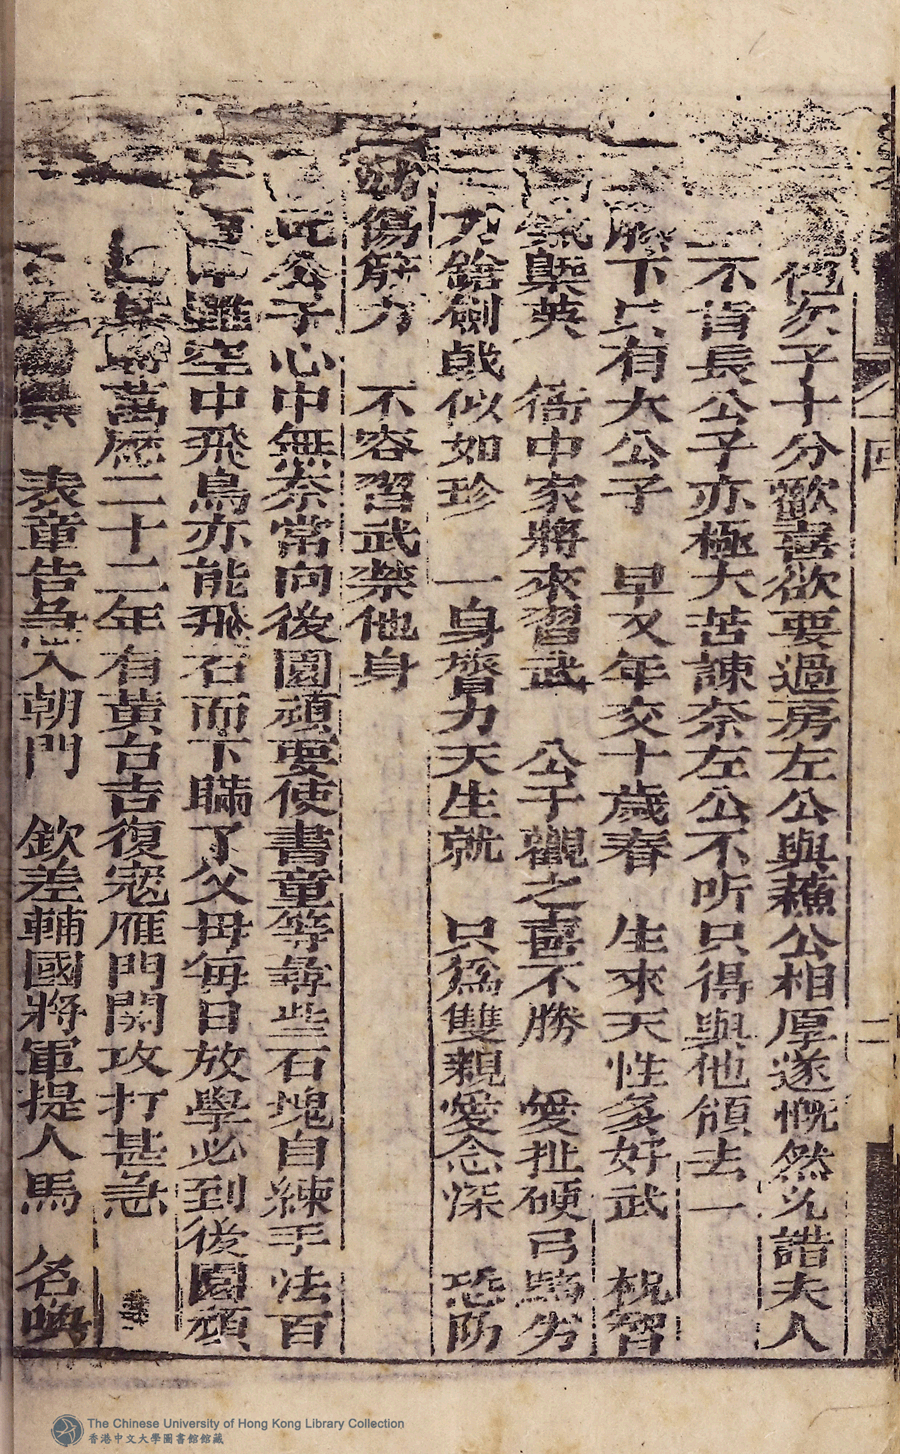 他次子十分歡喜欲要過房左公與蕉公相厚遂慨然允諾夫人
不肯長公子亦極大苦諫奈左公不听只得與他領去一
下只有大公子 早又年交十歲春 生來天性多好武 机智
氣槩英 衙中家將來習武 公子觀之喜不勝 愛扯硬弓騎劣
刀鎗劍戟似如珍 一身膂力天生就 只為雙親愛念深 恐防
傷筋力 不容習武禁他身
此公子心中無奈常向後園頑耍使書童等尋些石塊自練手法百
百中雖空中飛鳥亦能飛石而下瞞了父母每日放學必到後園頑
其時萬歷二十二年有黃台吉復寇雁門關攻打甚急
表章告急入朝門 欽差輔國將軍提人馬 名喚
回
二
The Chinese University of Hong Kong Library Collection
香港中文大學圖書館館藏